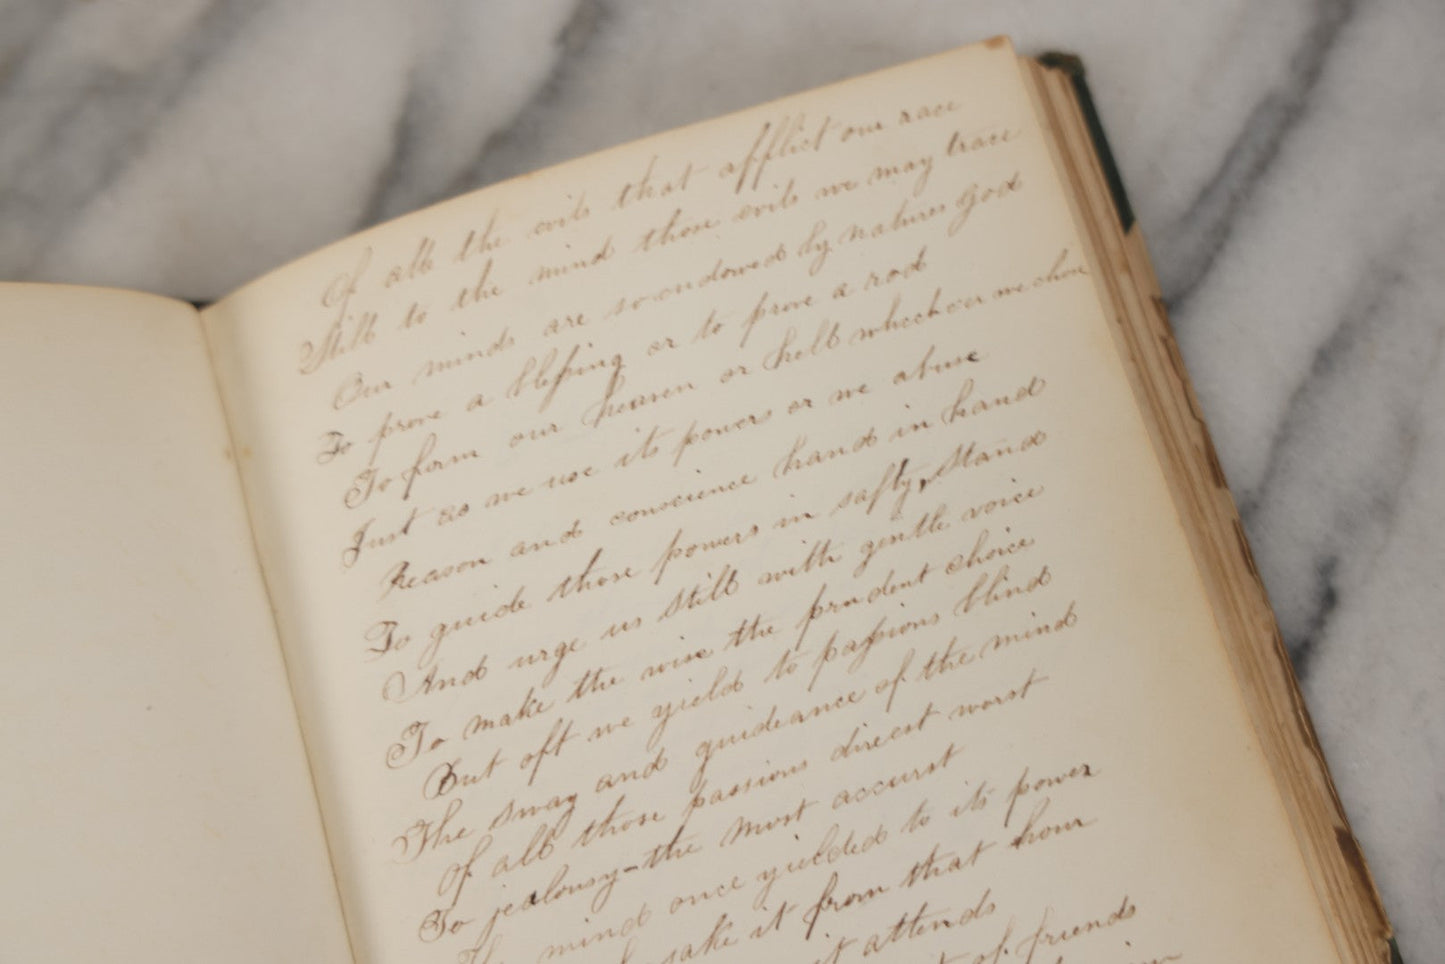 Of all the evils that afflict our race
Still to the mind those evils we may trace
Our minds are so endowed by natures God
To prove a blessing or to prove a rod
To form our heaven or hell whichever we
Just as we use its powers or we abuse
Reason and conscience hand in hand
To guide those powers in safty, stand
And urge us still with gentle voice
To make the wise the prudent choice
But oft we yield to passions blind
The sway and guideance of the mind
Of all those passions direst worst
To jealousy-the most accurst
The mind once yielded to its power
sake it from that hour
it attends
of friends